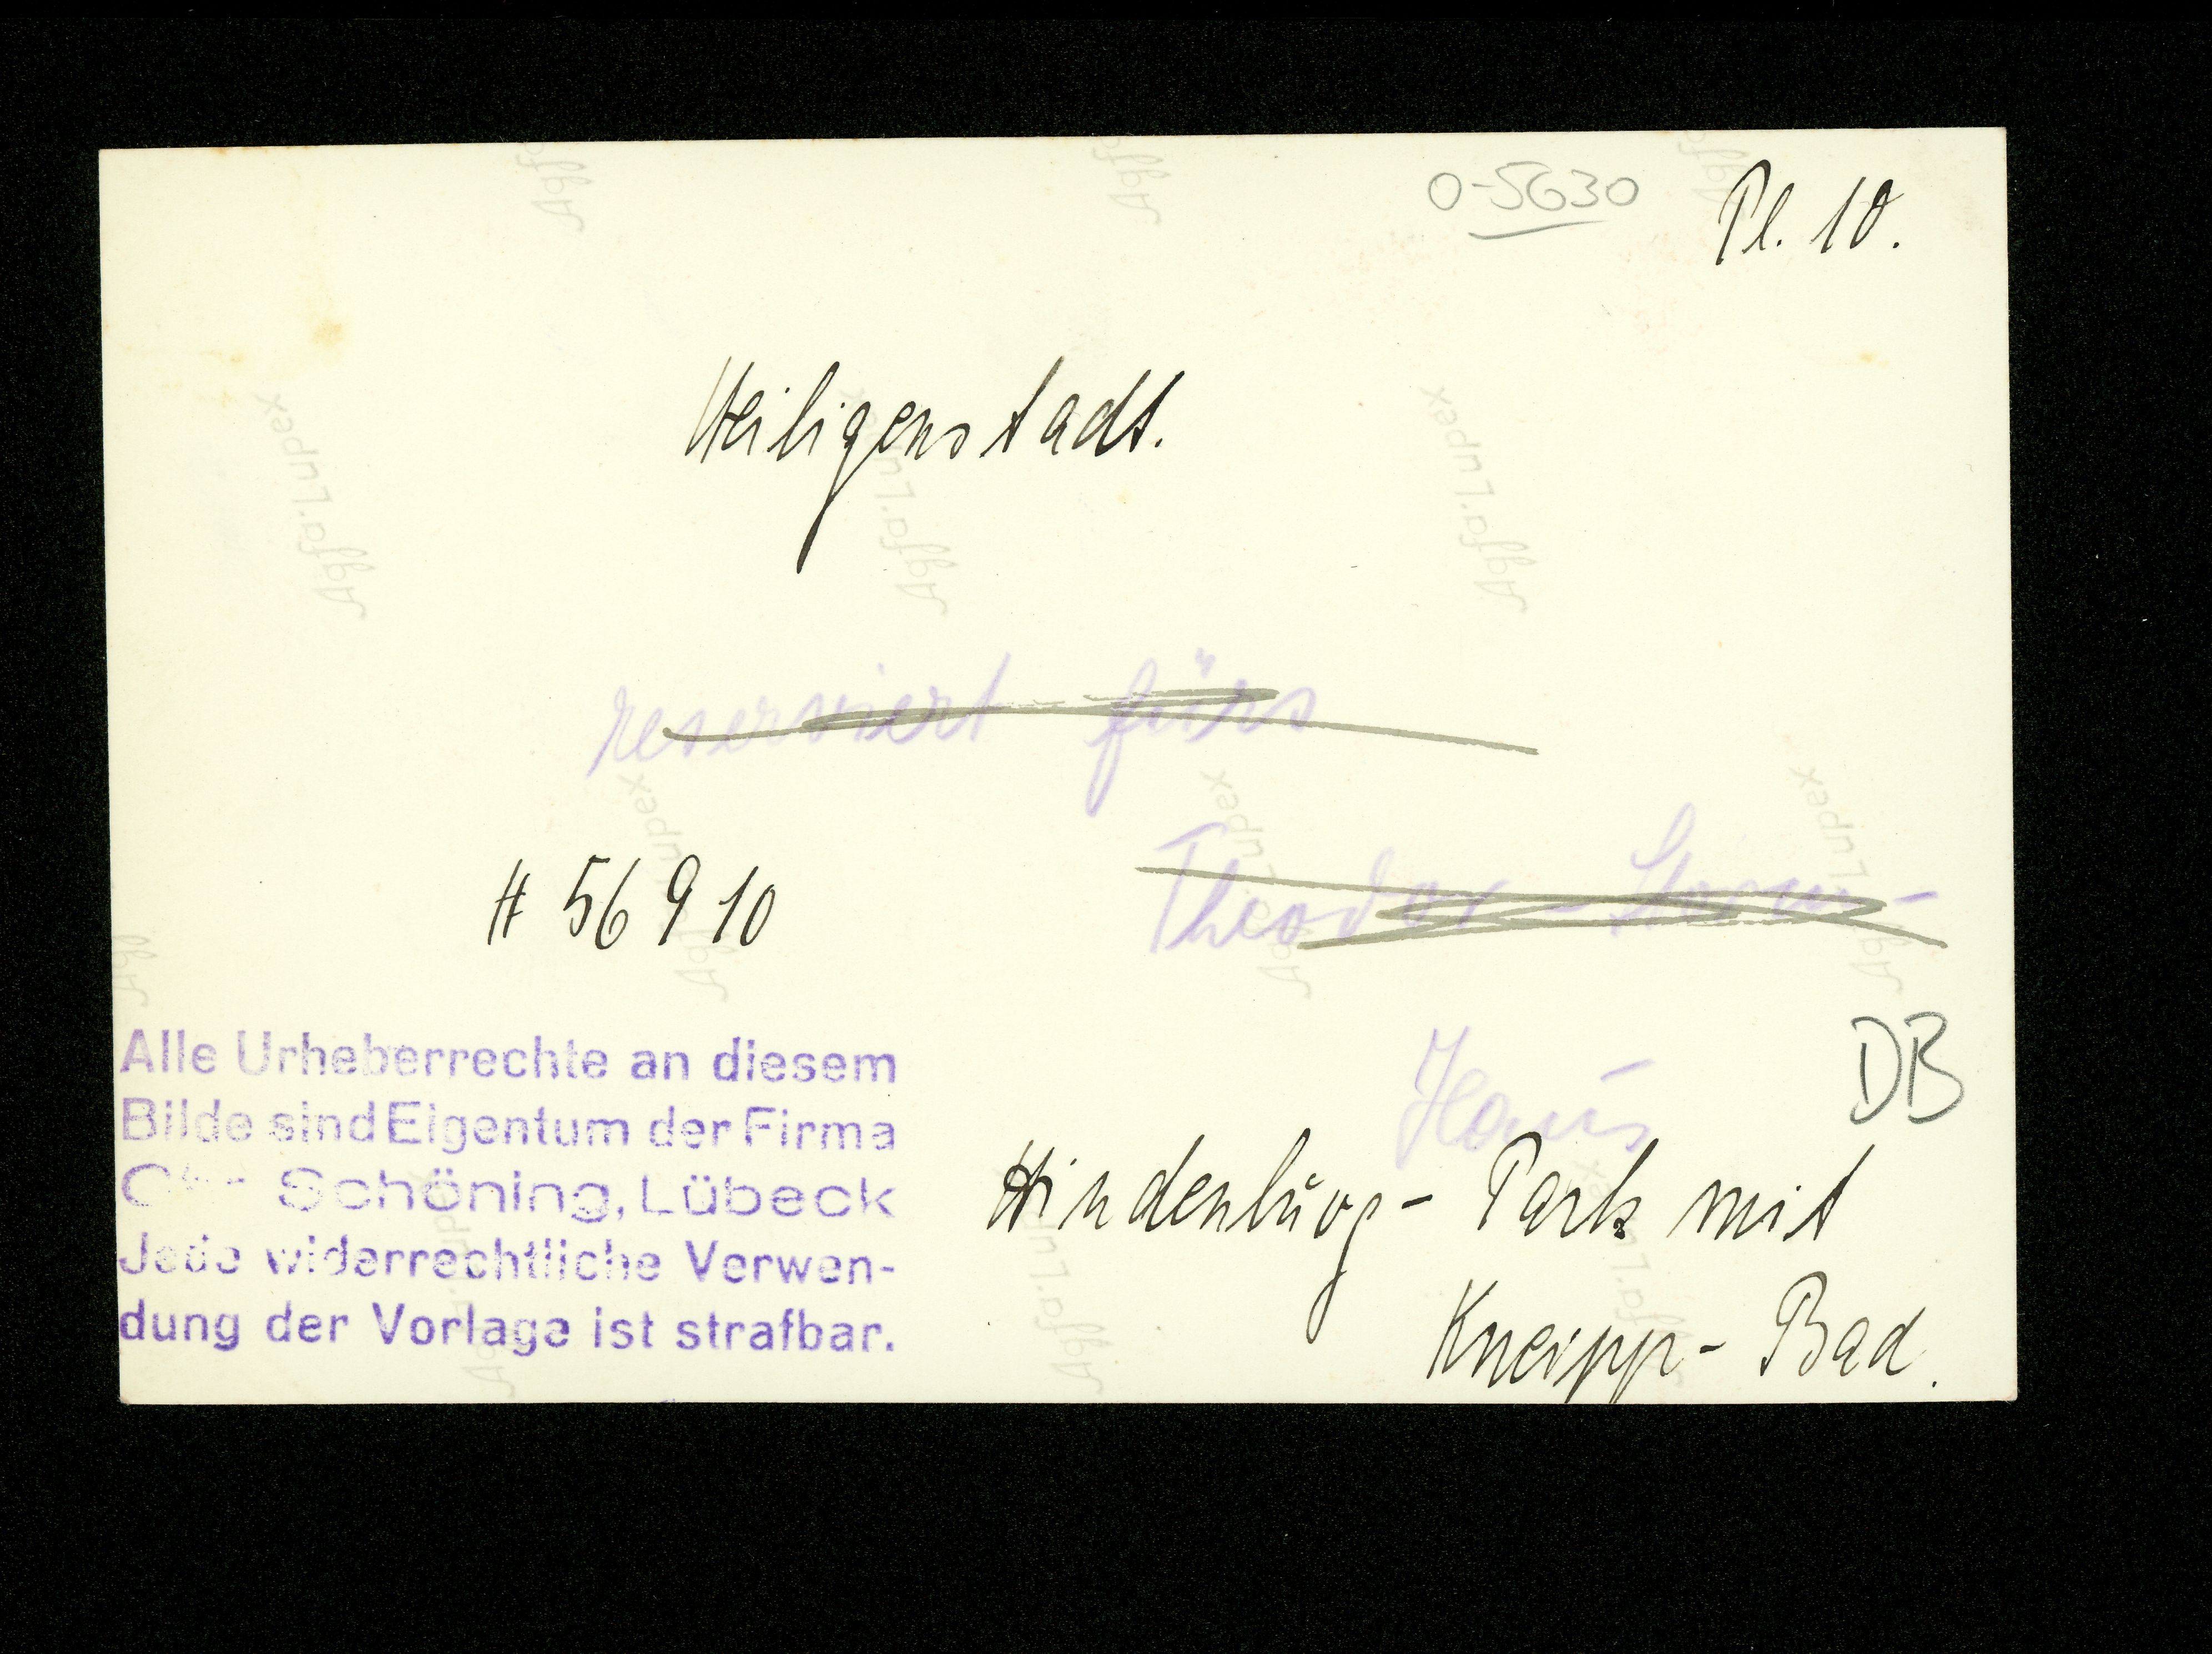 O-5630
Pl. 10.
Heiligenstadt.
reserviert fürs
Theodor-Storm-
Haus
# 56910
DB
Hindenburg-Park mit
Kneipp-Bad.
Alle Urheberrechte an diesem
Bilde sind Eigentum der Firma
Schöning, Lübeck
Jede widerrechtliche Verwen-
dung der Vorlage ist strafbar.
Agfa Lupex
Agfa Lupex
Agfa Lupex